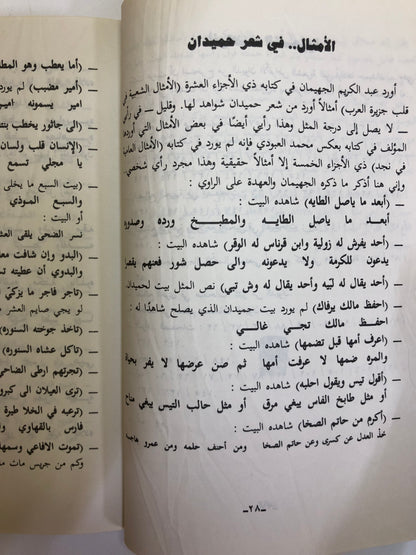 الأمثال.. في شعر حميدان
أورد عبد الكريم الجهيمان في كتابه ذي الأجزاء العشرة (الأمثال الشعبية في
قلب جزيرة العرب) أمثالاً أورد من شعر حميدان شواهد لها. وقليل — في رأيي
— لا يصل إلى درجة المثل وهذا رأيي أيضًا في بعض الأمثال التي أوردها
المؤلف في كتابه بعكس محمد العبودي فإنه لم يورد في كتابه (الأمثال العامية
في نجد) ذي الأجزاء الخمسة إلا أمثالاً حقيقية وهذا مجرد رأي شخصي.
وإني هنا أذكر ما ذكره الجهيمان والعهدة على الراوي :
— (أبعد ما ياصل الطايه) شاهده البيت :
أبعد ما ياصل الطايه والمطبخ ورده وصدوره
— (أحد يفرش له زولية وابن قرناس له الوقر) شاهده البيت :
يدعون للكرمة ولا يدعونه والى حصل شور فعتهم بقصا
— (أحد يقال له لبّيه وأحد يقال له وش تبي) نص المثل بيت لحميدان
— (احفظ مالك يرفاك) لم يورد بيت حميدان الذي يصلح شاهدًا له :
احفظ مالك تجي غالي
— (اعرف أمها قبل تضمها) شاهده البيت :
والمره ضمها لا عرفت أمها ثم صن عرضها لا يفر بحياة
— (أقول تيس ويقول احلبه) شاهده البيت :
أو مثل طابخ الفاس يبغي مرق أو مثل حالب التيس يبغي مناح
— (أكرم من حاتم الصخا) شاهده البيت :
خذ العدل عن كسرى وعن حاتم الصخا ومن أحنف حلمه ومن عمرو هاجسه
—٢٨—
— (أما يعطب وهو المطا
— (أمير مضبب) لم يورد
امير يسمونه امير
— (الى جاثور يخطب بنته
— (الإنسان قلب ولسان
يا مجلي تسمع
— (بيت السبع ما يخلى
والسبع الموذي
أو البيت :
نسر الضحى يلقى العش
— (البدو وإن شافت معا
والبدوي أن عطيته تسا
— (تاجر فاجر ما يزكي
لو يجي صايم العشر
— (تاخذ جوخته السنوره)
— (تاكل عشاه السنوره)
— (تجرتهم ارطى الضاحي
— (ترى العيلان الى كبرو
— (ترعيه في الخلا طيرة
فارس بالقهاوي
— (تموت الافاعي وسمها
وكم من جرهس مات ما